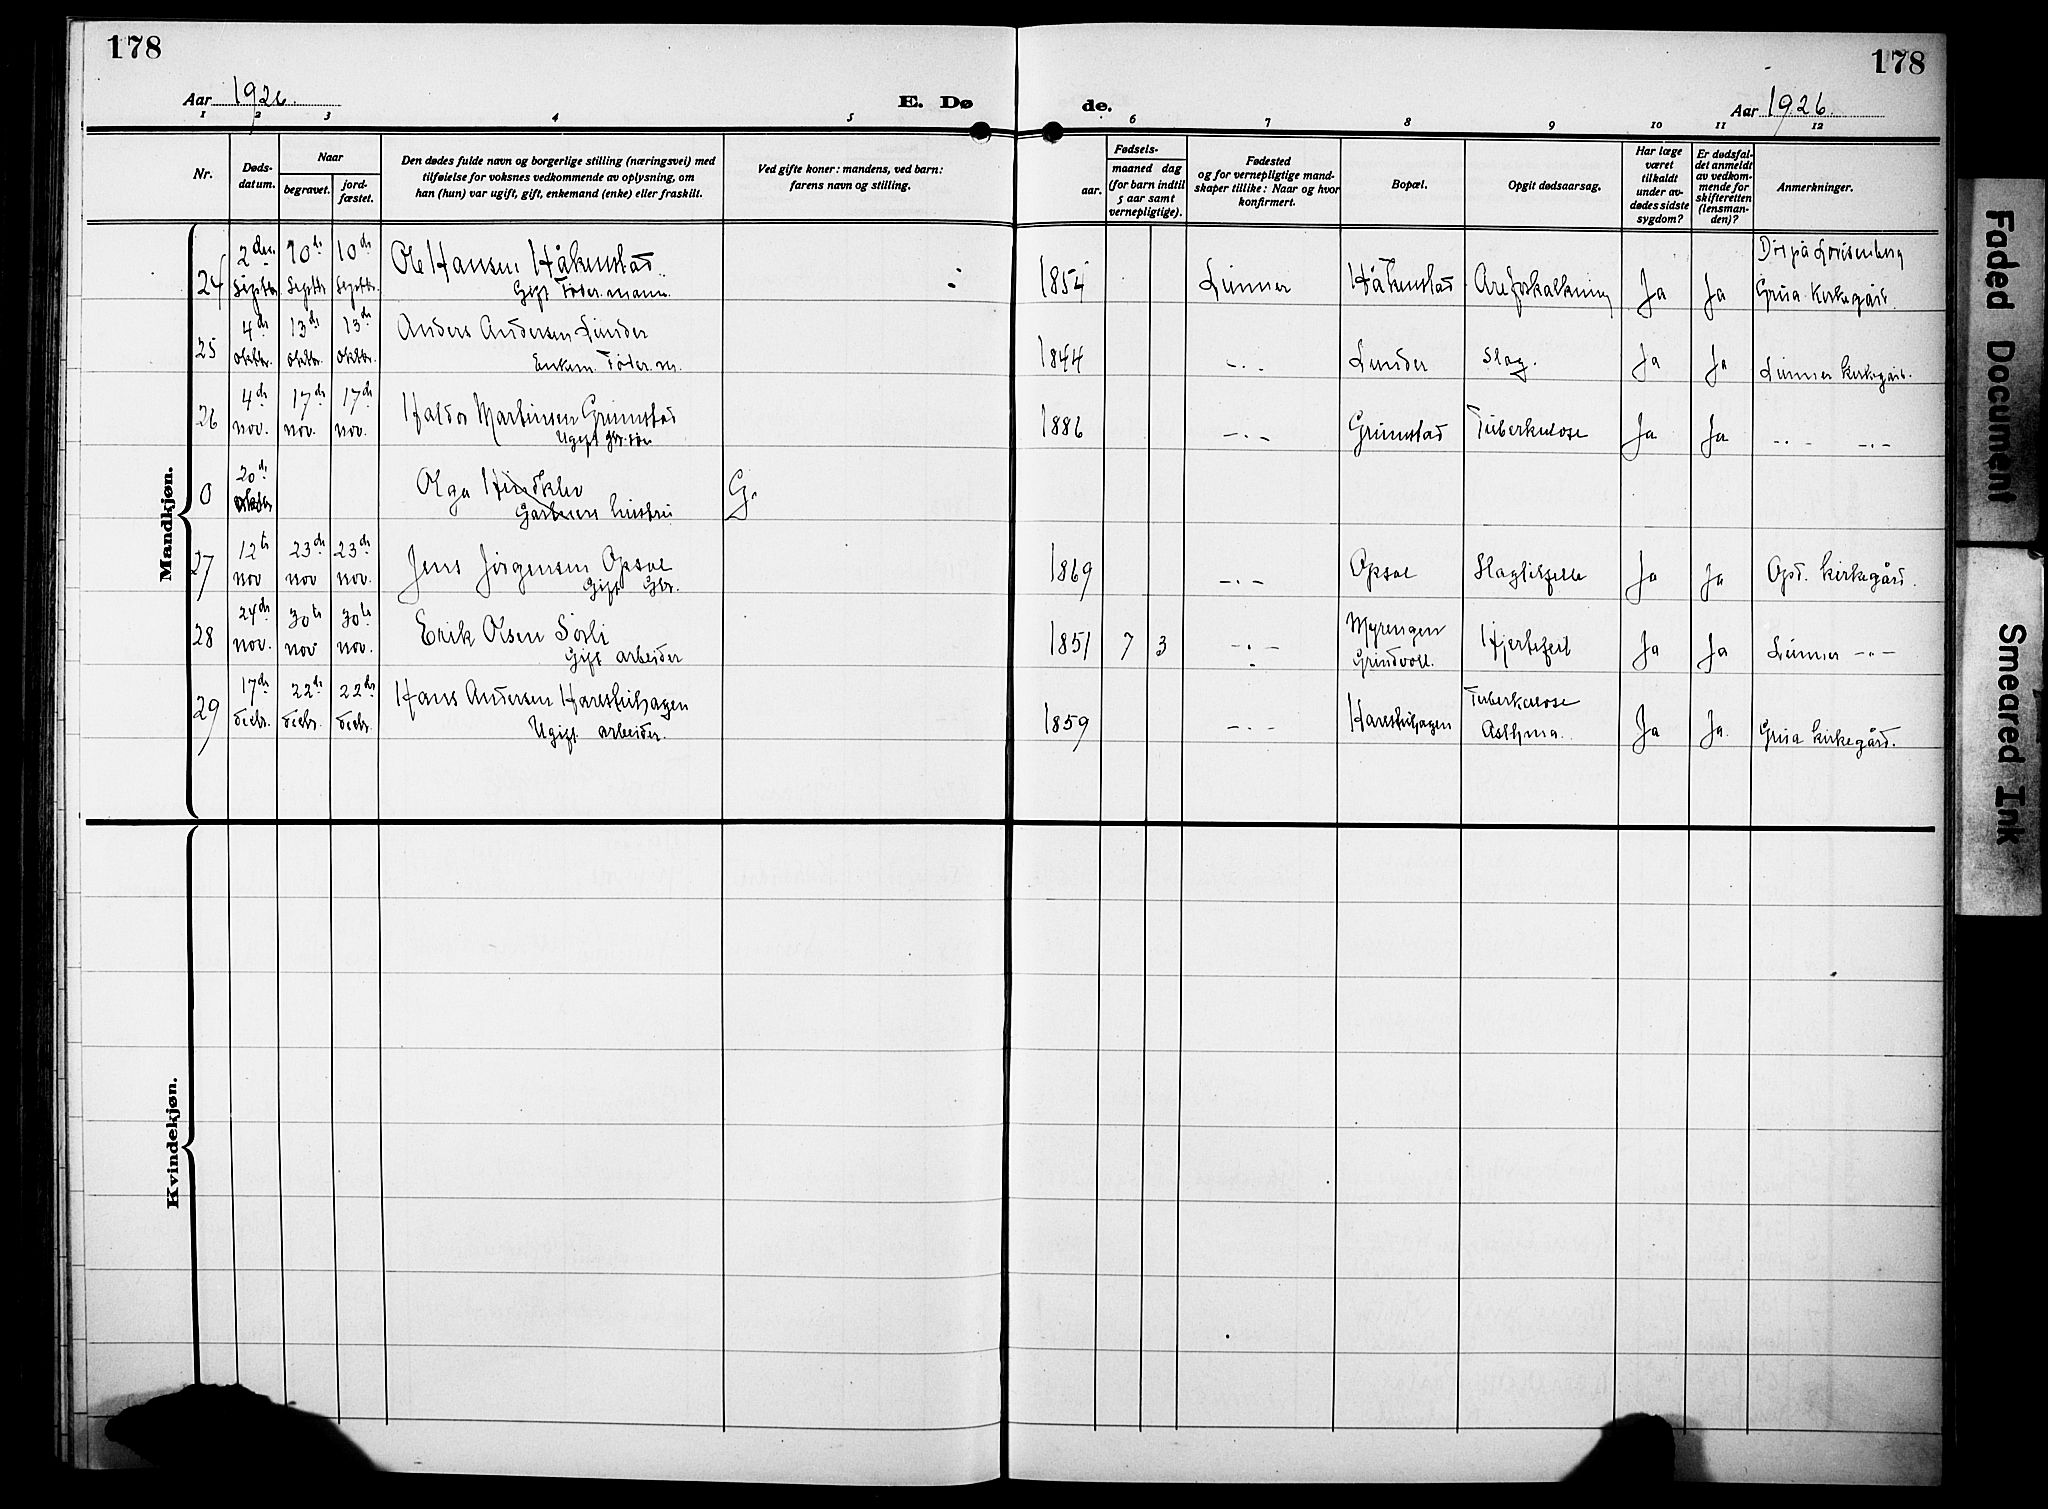 178
178
Aar 1926.
E. Dø
de.
Aar 1926.
1 2 3 4 5 6 7 8 9 10 11 12
Nr.
Døds-
datum.
Naar
begravet.
jord-
fæstet.
Den dødes fulde navn og borgerlige stilling (næringsvei) med
tilføielse for voksnes vedkommende av oplysning, om
han (hun) var ugift, gift, enkemand (enke) eller fraskilt.
Ved gifte koner: mandens, ved barn:
farens navn og stilling.
Fødsels-
aar.
maaned dag
(for barn indtil
5 aar samt
vernepligtige).
Fødested
og for vernepligtige mand-
skaper tillike: Naar og hvor
konfirmert.
Bopæl.
Opgit dødsaarsag.
Har læge
været
tilkaldt
under av-
dødes sidste
sygdom?
Er dødsfal-
det anmeldt
av vedkom-
mende for
skifteretten
(lensman-
den)?
Anmerkninger.
Mandkjøn.
24 2den Septbr 10de Septbr 10de Septbr. Ole Hansen Håkenstad.
Gift Føder.mann.
1854 Lunner Håkenstad Areforkalkning Ja Ja
Grua Kirkegård.
25 4de oktbr. 13de oktbr. 13de oktbr. Anders Andersen Lunder
Enkem. Føder.m.
1844 -"- Lunder Slag. Ja Ja Lunner Kirkegård.
26 4de nov. 17de nov. 17de nov. Haldor Martinsen Grumstad
Ugift gbr. søn
1886 -"- Grumstad Tuberkulose Ja Ja -"- -"-
0 20de oktbr Olga
Gartners hustru
G.
27 12te nov 23de nov 23de nov. Jens Jørgensen Opsal
Gift Gbr.
1869 -"- Opsal Slagtilfelle Ja Ja Opd. Kirkegård.
28 24de nov. 30te nov 30te nov. Erik Olsen Sørli
Gift arbeider
1851 7 3 -"- Myrengen
Grindvoll. Hjertefeil Ja Ja Lunner -"-
29 17de decbr. 22de decbr. 22de decbr. Hans Andersen Harestuhagen
Ugift arbeider.
1859 -"- Harestuhagen Tuberkulose
Asthma. Ja Ja. Grua Kirkegård.
Kvindekjøn.
Faded Document
Smeared Ink